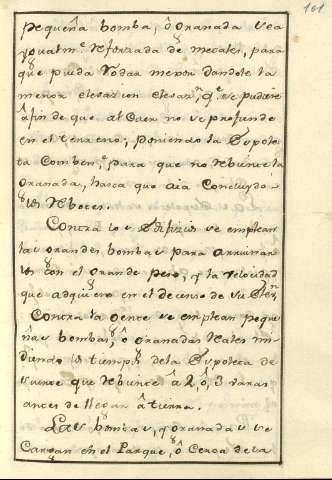 101
pequeña bomba, ô Granada sea
ygualm.e reforzada de metales, para
que pueda rodar menos dandole la
menor elevazion elevaz.n q.e se pudiere
âfin de que al Caer no se profunde
en el terreno; poniendo la Espole
ta Comben.te para que no rebiente la
Granada, hasta que aia Concluydo
los rebotes.
Contra los Edifizios se emplean
las Grandes bombas para arruinar
los con el Grande peso, y la velocidad
que adquieren en el decenso de su
Contra la Gente se emplean peque
ñas bombas, ô Granadas Reales mi
diendo los tiempos dela Espoleta de
suerte que rebiente â 2, ô, 3 varas
antes de llegar â tierra.
Las bombas, y Granadas se
Cargan en el Parque, ô Cerca dela